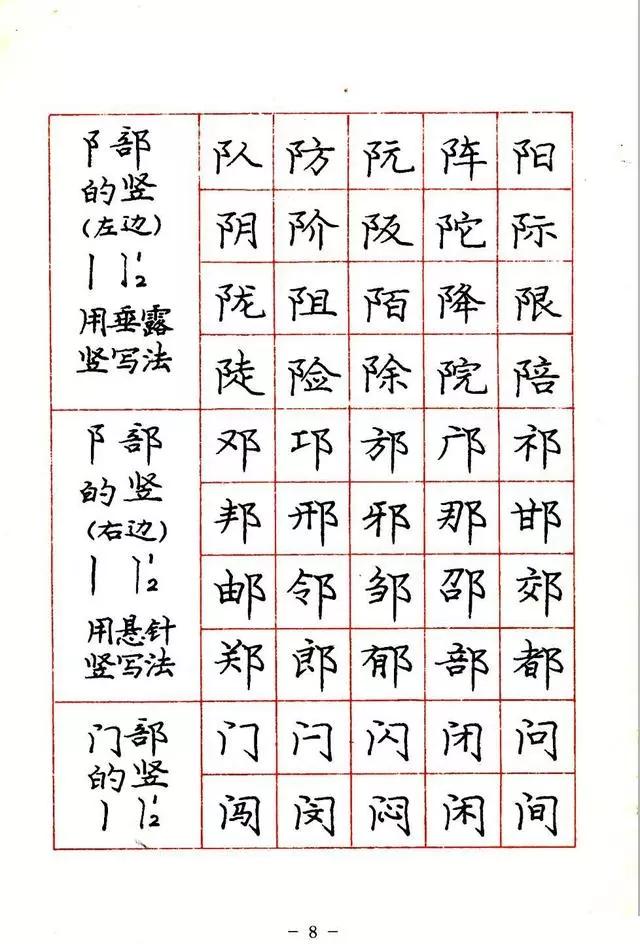 阝部
的竖
(左边)
丨 丨½
用垂露
竖写法
队 防 阮 阵 阳
阴 阶 阪 陀 际
陇 阻 陌 降 限
陡 险 除 院 陪
阝部
的竖
(右边)
丨 丨½
用悬针
竖写法
邓 邛 邡 邝 祁
邦 邢 邪 那 邯
邮 邻 邹 邵 郊
郑 郎 郁 部 都
门部
的竖
丨 丨½
门 闩 闪 闭 问
闯 闵 闷 闲 间
- 8 -